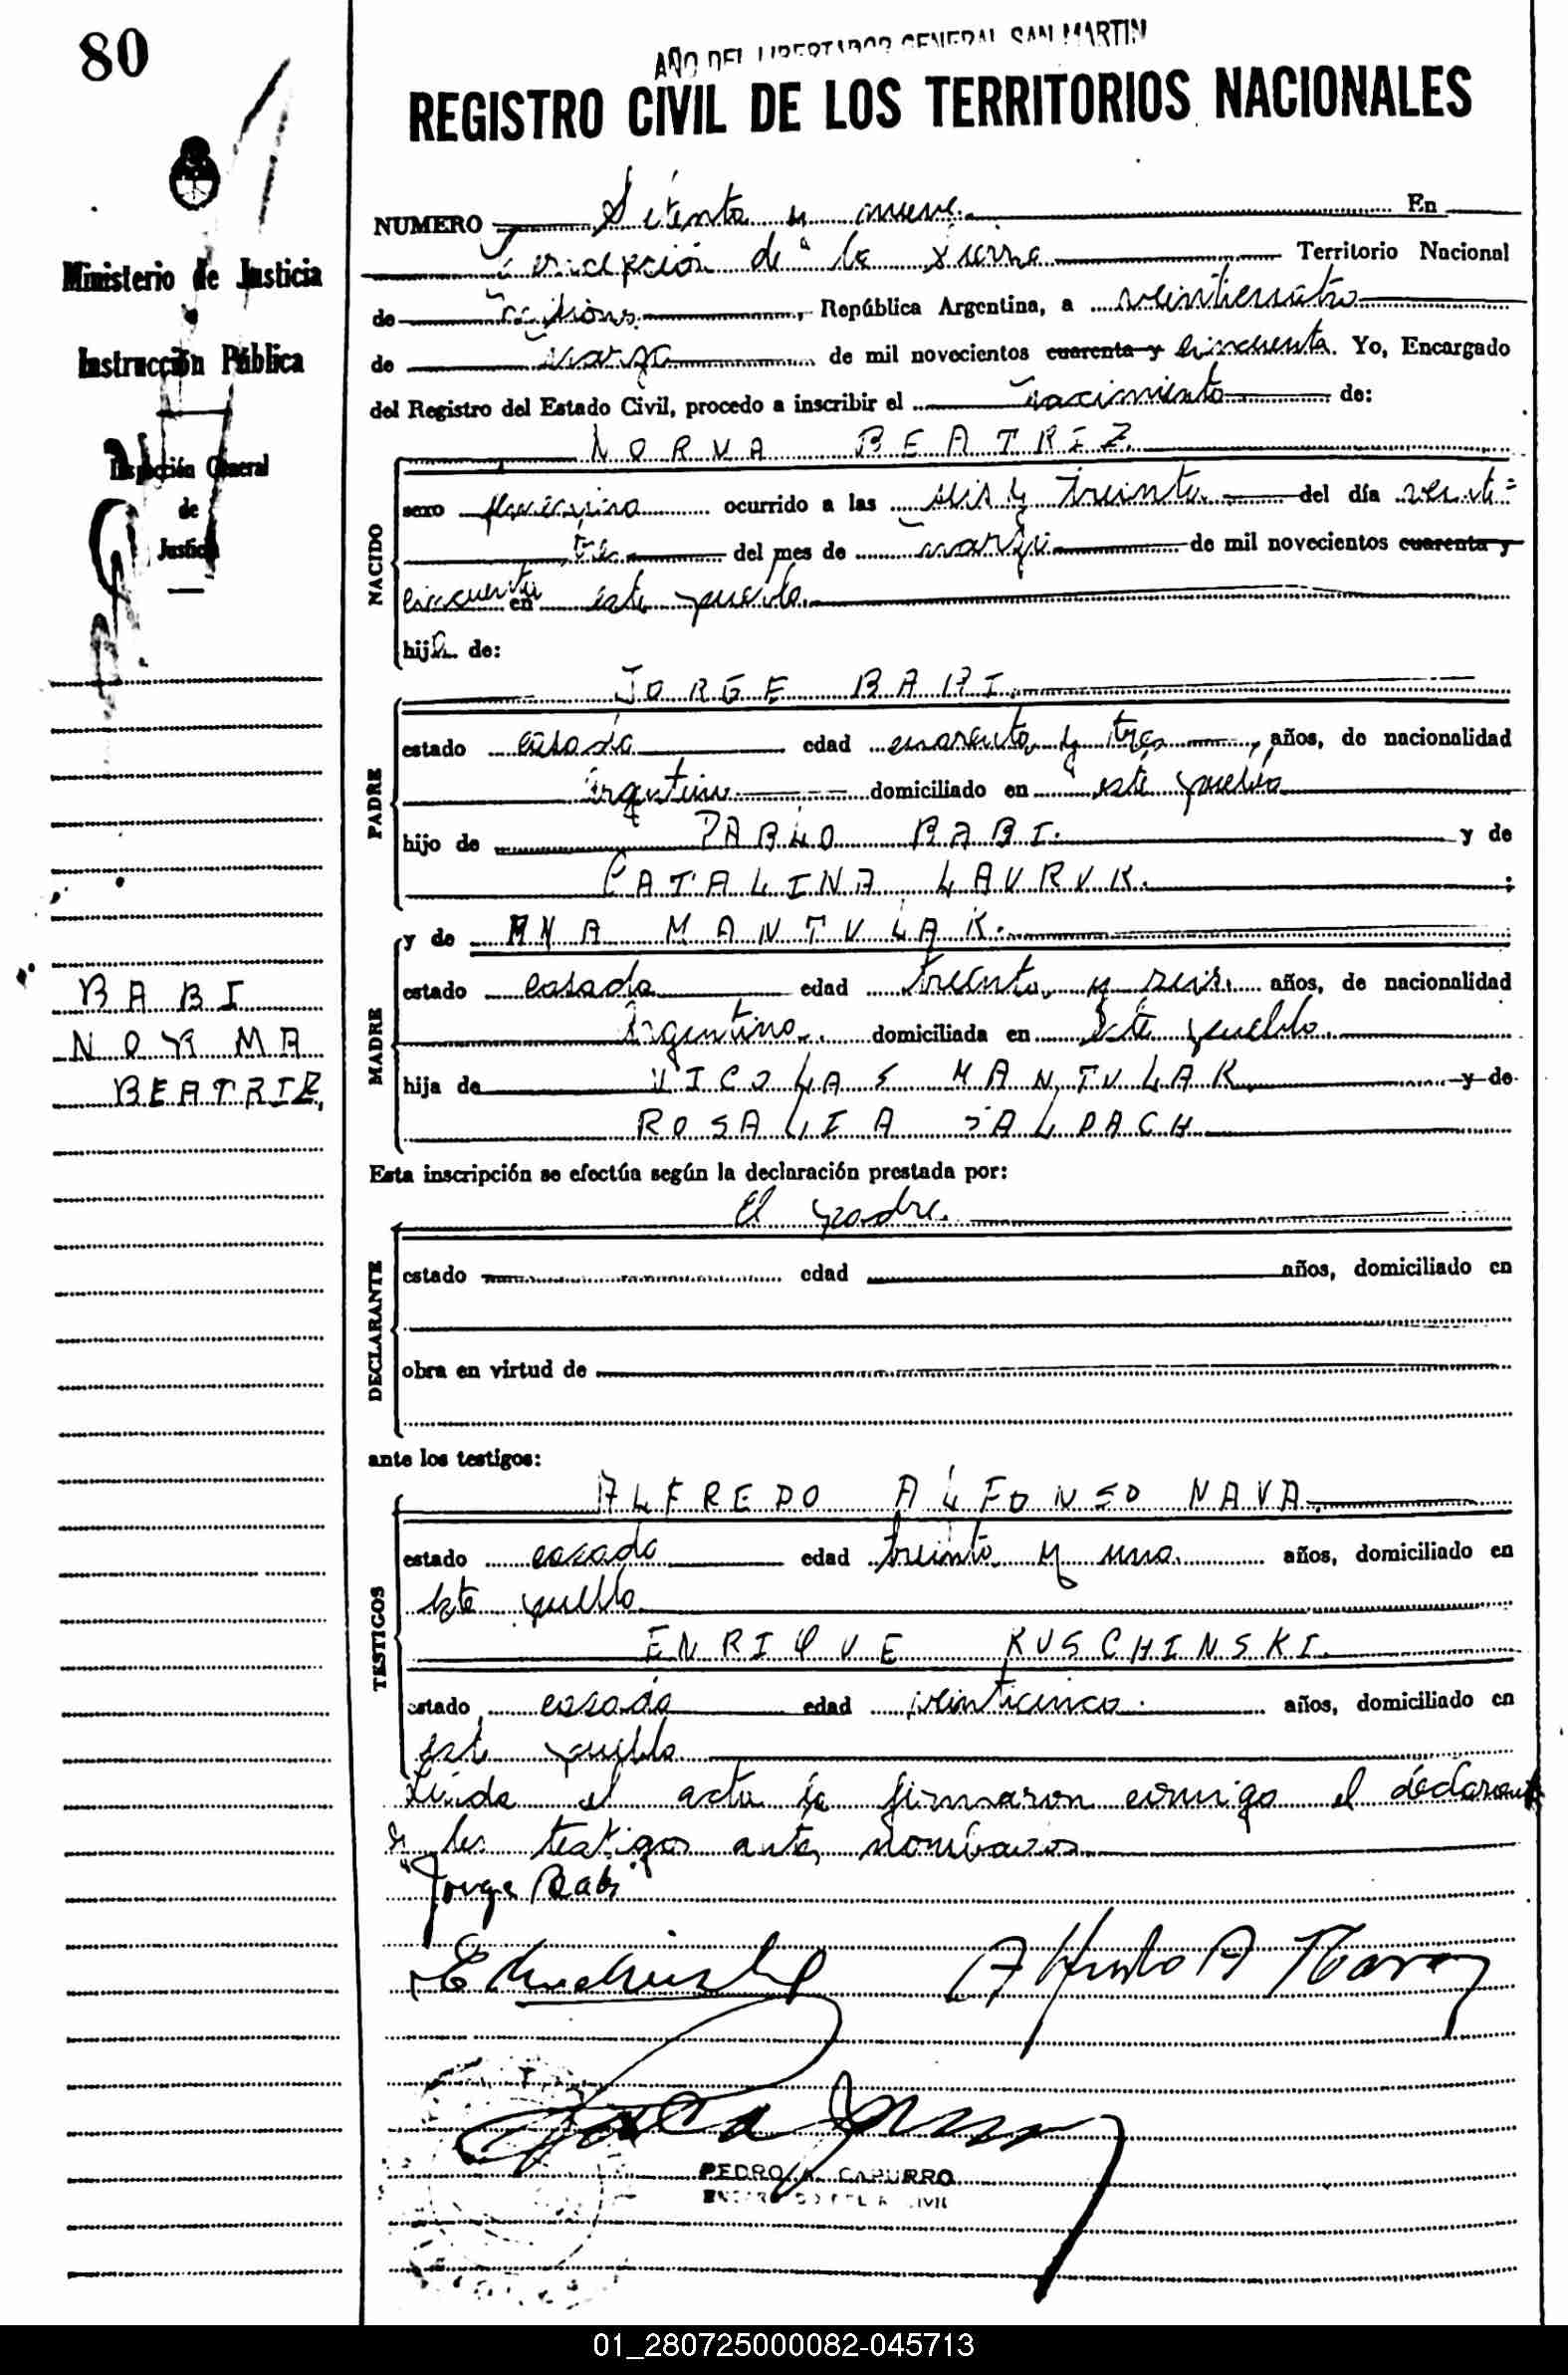 80
AÑO DEL LIBERTADOR GENERAL SAN MARTIN
REGISTRO CIVIL DE LOS TERRITORIOS NACIONALES
Ministerio de Justicia
Instrucción Pública
Inspección General
de
Justicia
NUMERO Setenta y nueve. En
Concepción de la Sierra Territorio Nacional
de Misiones, República Argentina, a veinticuatro
de marzo de mil novecientos cuarenta y cincuenta. Yo, Encargado
del Registro del Estado Civil, procedo a inscribir el nacimiento de:
NORMA BEATRIZ
NACIDO
sexo femenino ocurrido a las seis y treinta del día veinti=
trés del mes de marzo de mil novecientos cuarenta y
cincuenta en este pueblo.
hija de:
JORGE BABI.
PADRE
estado casado edad cuarenta y tres, años, de nacionalidad
argentino domiciliado en este pueblo
hijo de PABLO BABI. y de
CATALINA LAURUK. ;
y de ANA MANTULAK.
MADRE
estado casada edad treinta y seis. años, de nacionalidad
Argentina. domiciliada en este pueblo.
hija de NICOLAS MANTULAK y de
ROSALIA
BABI
NORMA
BEATRIZ,
Esta inscripción se efectúa según la declaración prestada por:
El padre.
DECLARANTE
estado edad años, domiciliado en
obra en virtud de
ante los testigos:
ALFREDO ALFONSO NAVA.
TESTIGOS
estado casado edad treinta y uno. años, domiciliado en
este pueblo
ENRIQUE KUSCHINSKI.
estado casado edad veinticinco. años, domiciliado en
este pueblo
Leida el acta la firmaron conmigo el declarante
y los testigos ante nombrados
"Jorge Babi"
PEDRO A. CAPURRO
01_280725000082-045713